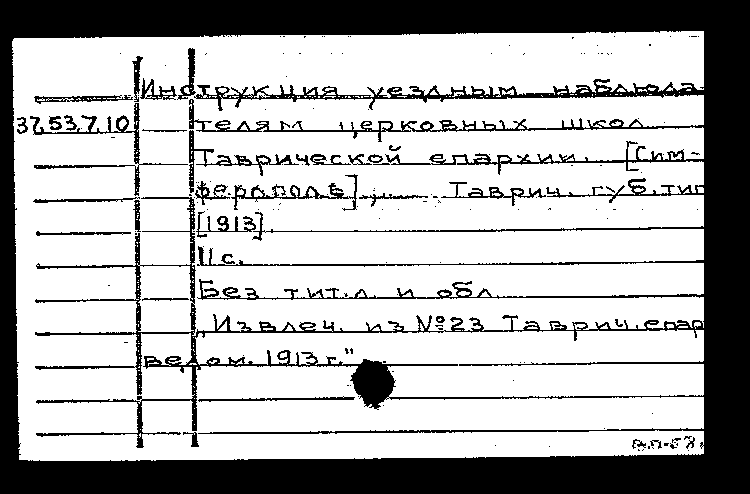 Инструкция уездным наблюда-
37.53.7.10 телям церковных школ
Таврической епархии. [Сим-
ферополь], Таврич. губ. тип
[1913].
11 с.
Без тит. л. и обл.
„Извлеч. из №23 Таврич. епар
ведом. 1913 г."